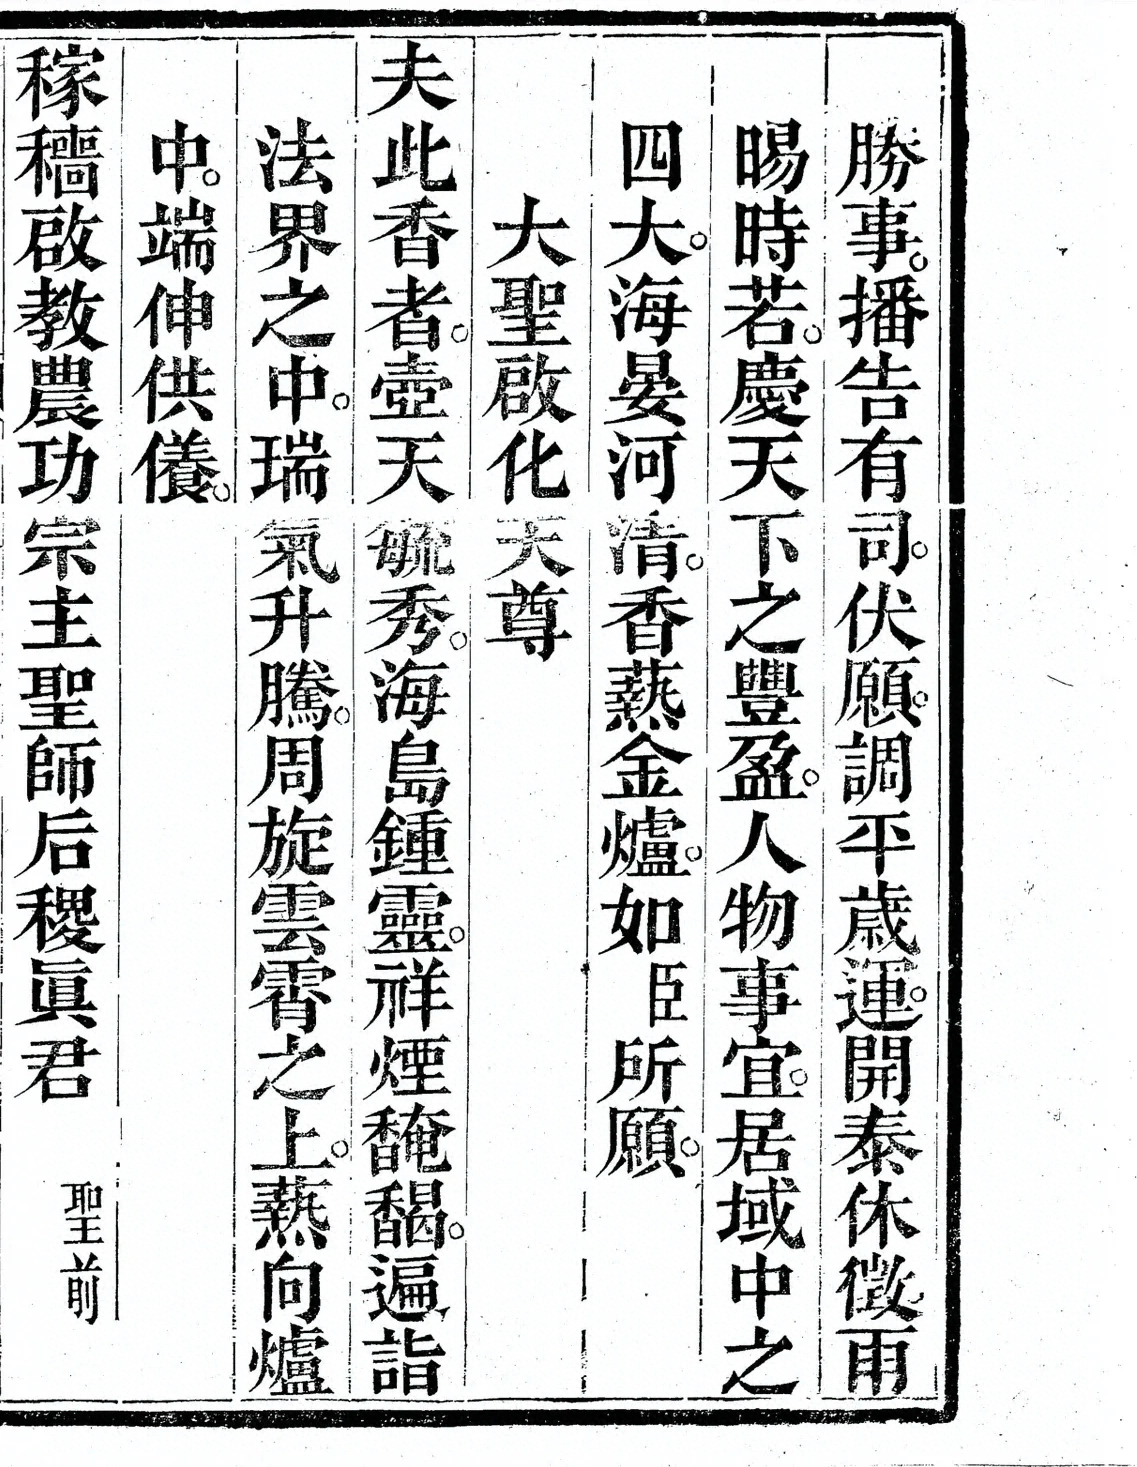 勝事。播告有司。伏願。調平歲運。開泰休徵。雨
暘時若。慶天下之豐盈。人物事宜。居域中之
四大。海晏河清。香爇金爐。如臣所願。
大聖啟化天尊
夫此香者。壺天毓秀。海島鍾靈。祥煙馣馤。遍詣
法界之中。瑞氣升騰。周旋雲霄之上。爇向爐
中。端伸供儀。
稼穡啟教農功宗主聖師后稷眞君 聖前